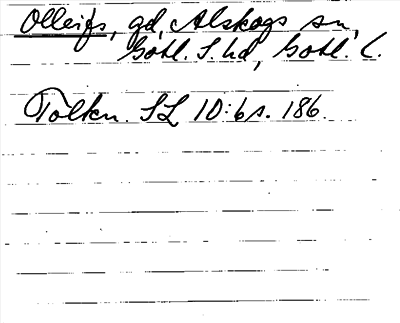 Olleifs, gd, Alskogs sn,
Gotl. S. hd, Gotl. l.
Tolkn. SL 10:6 s. 186.